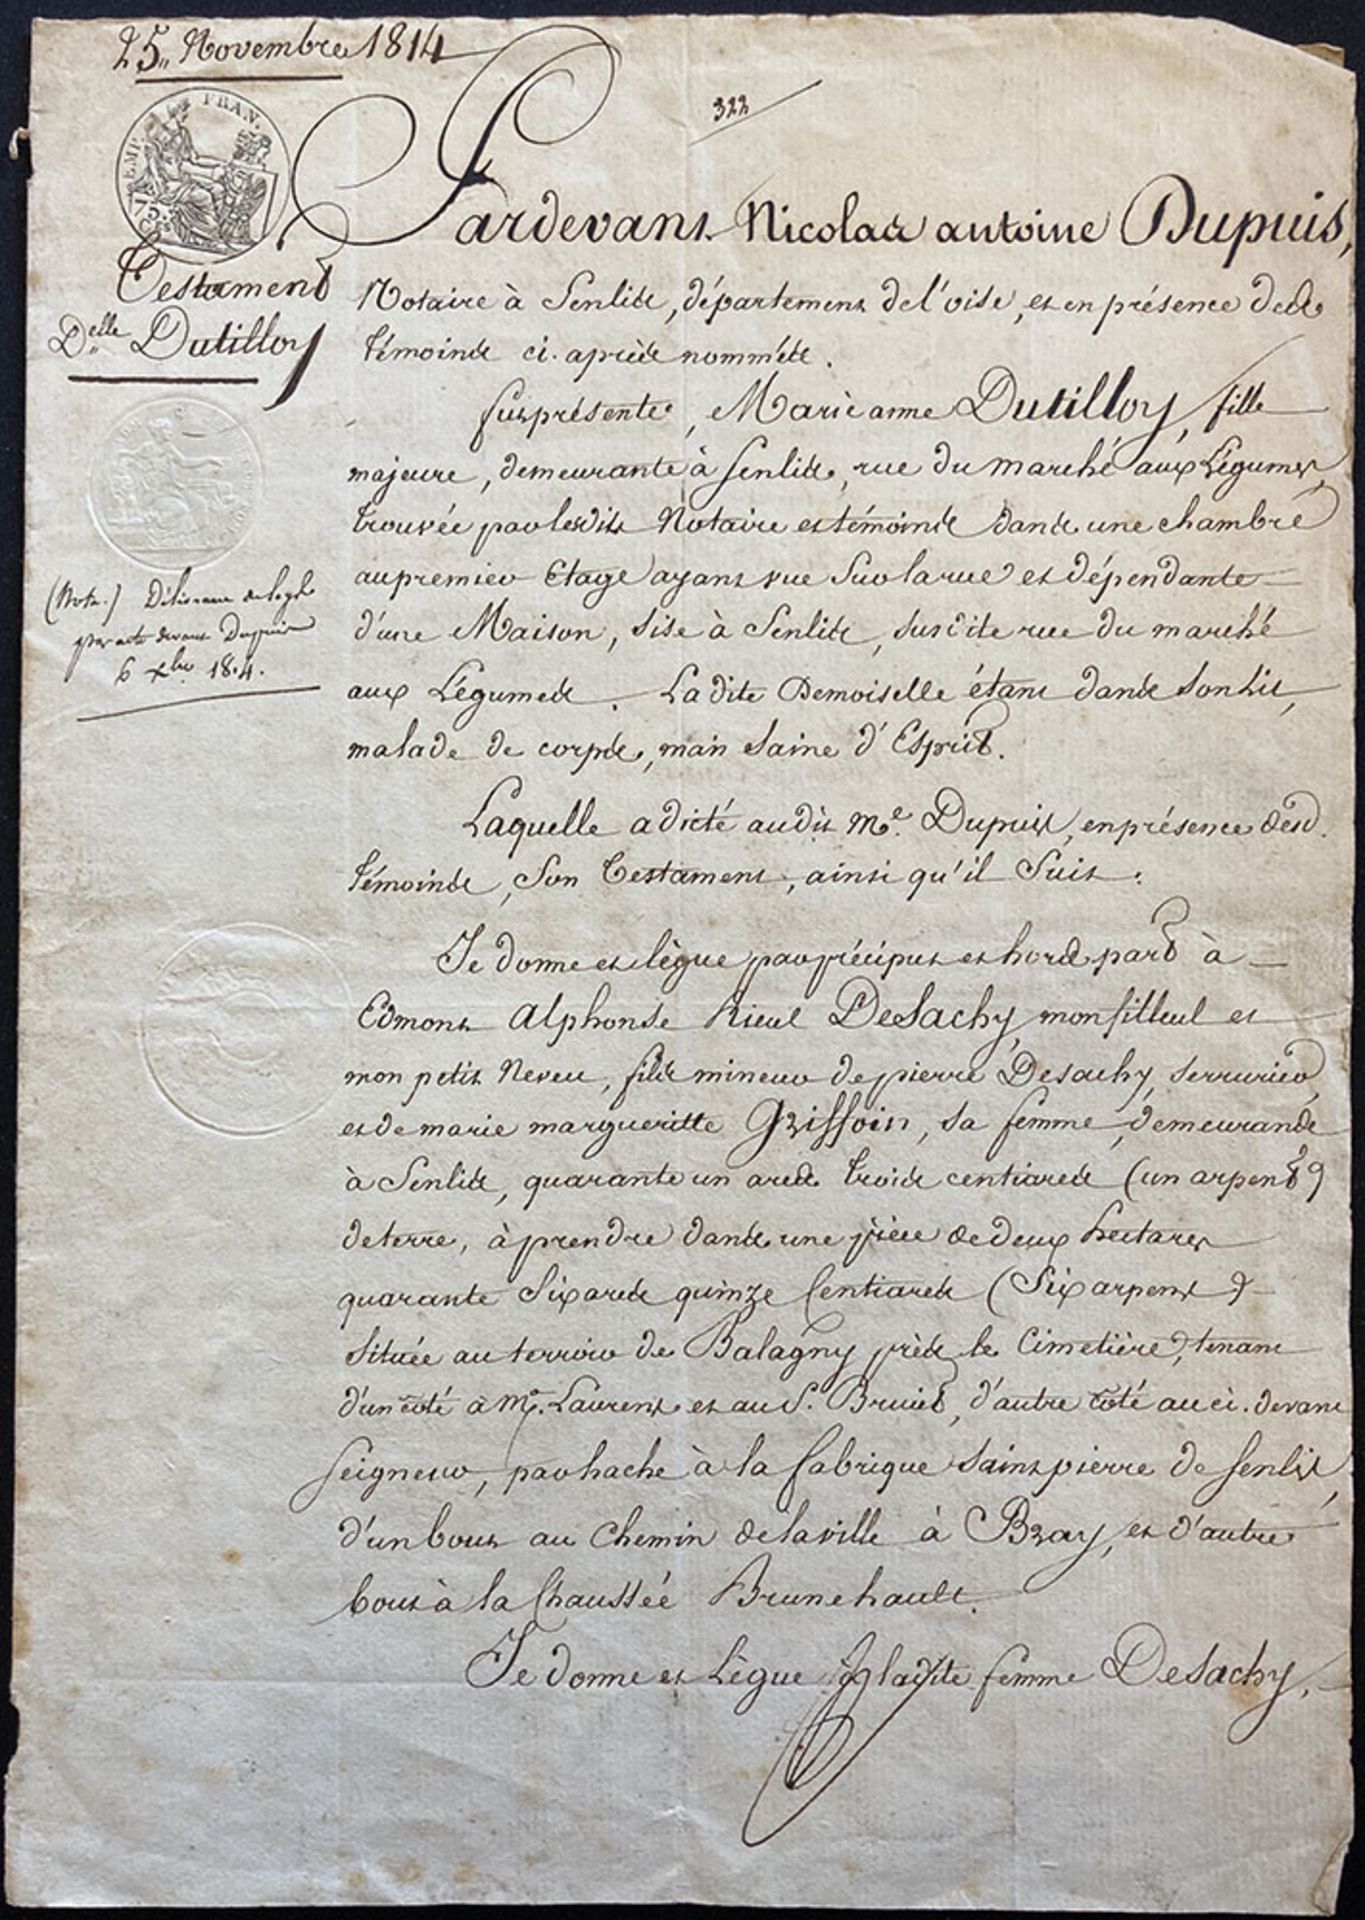 25 Novembre 1814
322
EMP. FRAN.
75 C.
Pardevant Nicolas antoine Dupuis,
Testament
Delle Dutilloy
Notaire à Senlis, département de l'oise, et en présence des
témoins ci-après nommés.
fut présente, Marie anne Dutilloy, fille
majeure, demeurante à Senlis, rue du marché aux Légumes,
trouvée par lesdits Notaire et témoins dans une chambre
au premier Etage ayant vue sur la rue et dépendante
d'une Maison, sise à Senlis, susdite rue du marché
aux Légumes. Ladite Demoiselle étant dans son Lit,
malade de corps, mais saine d'Esprit.
(Nota.) Délivrance de legs
par acte devant Dupuis
6 xbre 1814.
Laquelle a dicté audit Me. Dupuis, en présence desd.
témoins, Son Testament, ainsi qu'il Suit.
Je donne et lègue par préciput et hors part à
Edmont Alphonse Rieul Desachy, mon filleul et
mon petit Neveu, fils mineur de pierre Desachy, serrurier,
et de marie margueritte Griffoin, sa femme, demeurans
à Senlis, quarante un ares trois centiares (un arpent)
de terre, à prendre dans une pièce de deux hectares
quarante Six ares quinze Centiares (Six arpens)
Située au terroir de Balagny près le Cimetière, tenant
d'un côté à Mr. Laurent et au S. Bruiet, d'autre côté au ci-devant
Seigneur, par hache à la fabrique Saint pierre de Senlis,
d'un bout au Chemin de la ville à Bray, et d'autre
bout à la Chaussée Brunehault.
Je donne et Lègue à ladite femme Desachy,